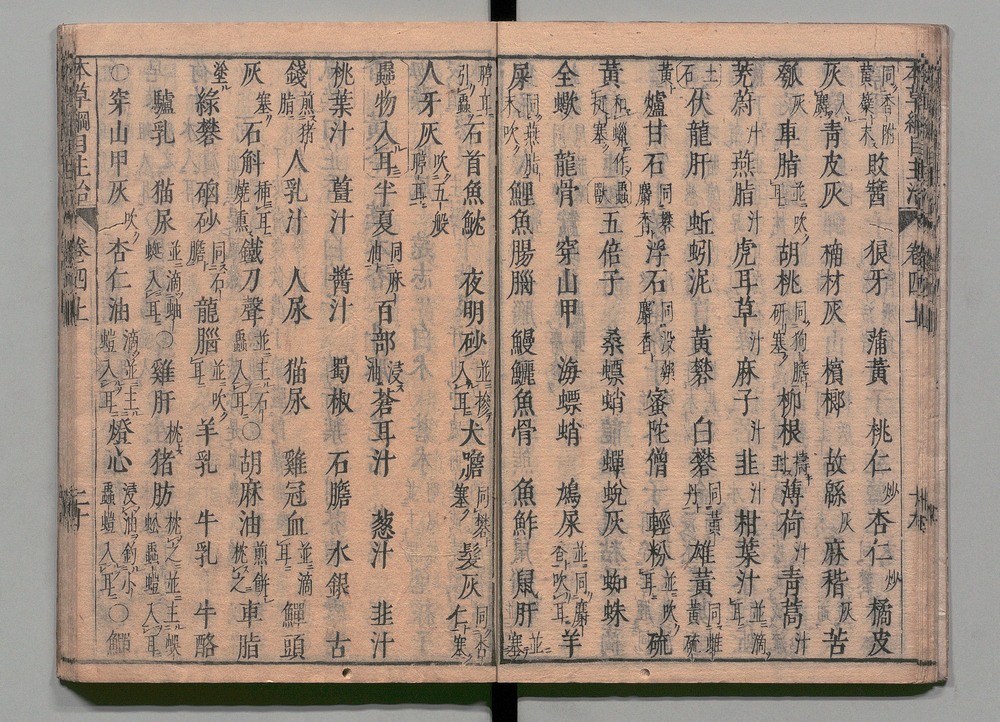 同香附 黃藥末 敗醬 狼牙 蒲黃 桃仁炒 杏仁炒 橘皮
灰 青皮灰 楠材灰 檳榔 故緜灰 麻秸灰 苦
瓠灰 車脂並吹耳 胡桃同狗膽研塞 柳根 薄荷汁 青蒿汁
茺蔚汁 燕脂汁 虎耳草汁 麻子汁 韭汁 柑葉汁並滴耳
土石 伏龍肝 蚯蚓泥 黃礬 白礬同黃丹 雄黃同雌黃硫
黃 爐甘石同礬麝香 浮石同沒藥麝香 密陀僧 輕粉並吹耳 硫
黃和蠟作挺塞 蟲獸 五倍子 桑螵蛸 蟬蛻灰 蜘蛛
全蠍 龍骨 穿山甲 海螵蛸 鳩屎並同麝香吹耳 羊
屎同燕脂末吹 鯉魚腸腦 鰻鱺魚骨 魚鮓 鼠肝並塞
聤耳引蟲 石首魚魫 夜明砂並摻入耳 犬膽同礬塞 髮灰同杏仁塞
人牙灰吹五般聤耳
蟲物入耳 半夏同麻油 百部浸油 蒼耳汁 葱汁 韭汁
桃葉汁 薑汁 醬汁 蜀椒 石膽 水銀 古
錢煎猪脂 人乳汁 人尿 猫尿 雞冠血並滴耳 鱓頭
灰塞 石斛插耳燒熏 鐵刀聲並主蟲入耳 ○胡麻油煎餅枕之 車脂
塗 綠礬 硇砂同石膽 龍腦並吹耳 羊乳 牛乳 牛酪
驢乳 猫尿並滴蚰蜒入耳 ○雞肝枕 猪肪枕之並主蜈蚣蟲螘入耳
○穿山甲灰吹 杏仁油滴並主螘入耳 燈心浸油釣小蟲螘入耳 ○鱓
本草綱目主治 卷四上